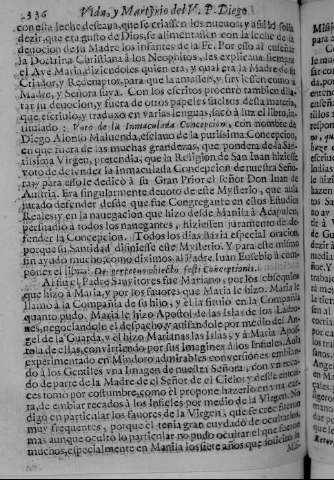 336 Vida, y Martyrio del V. P. Diego
con esta leche deseaua, que se criassen los nueuos, y assi solia
dezir, que era gusto de Dios, se alimentassen con la leche de la
deuocion de su Madre los infantes de la Fe. Por esso al enseñar
la Doctrina Christiana à los Neophitos, les explicaua siempre
el Ave Maria, diziendoles quien era, y qual era la Madre de su
Criador, y Redemptor, para que la amassen, y siruiessen como a
Madre, y Señora suya. Con los escritos procurò tambien dila-
tar su deuocion, y fuera de otros papeles sueltos desta materia,
que escriuio, y traduxo en varias lenguas, sacò à luz el libro, in-
titulado: Voto de la Inmaculada Concepcion, con nombre de
Diego Alonso Maluenda, esclauo de la purissima Concepcion,
en que fuera de las muchas grandezas, que pondera de la San-
tissima Virgen, pretendia, que la Religion de San Iuan hiziesse
voto de defender la inmaculada Concepcion de nuestra Seño-
ra, y para esso le dedicò à su Gran Prior el señor Don Iuan de
Austria. Era singularmente deuoto de este Mysterio, que auia
jurado defender desde que fue Congregante en estos Estudios
Reales; y en la nauegacion que hizo desde Manila à Acapulco,
persuadio à todos los nauegantes, hiziessen juramento de de-
fender la Concepcion. Todos los dias hazia especial oracion,
porque su Santidad difiniesse este Mysterio. Y para este mismo
fin ayudò mucho, como diximos, al Padre Iuan Eusebio à com-
poner el libro: De perpetuo obiecto festi Conceptionis.
Assi fue el Padre Sanvitores fue Mariano, por los obsequios
que hizo à Maria, y por los fauores que Maria le hizo. Maria le
llamò à la Compañia de su hijo, y èl la siruio en la Compañia
quanto pudo. Maria le hizo Apostol de las Islas de los Ladro-
nes, negociandole el despacho, y auisandole por medio del An-
gel de la Guarda, y èl hizo Marianas las Islas, y à Maria Apos-
tola de ellas, conuirtiendo por sus Imagenes à los Infieles. Auia
experimentado en Mindoro admirables conuersiones embian-
do à los Gentiles vna Imagen de nuestra Señora, con vn reca-
do de parte de la Madre de el Señor de el Cielo; y desde enton-
ces tomò por costumbre, como èl propone hazerlo en vna car-
ta, de embiar recados à los Infieles por medio de la Virgen. No
digo en particular los fauores de la Virgen, que se cree fueron
muy frequentes, porque èl tenia gran cuydado de ocultarlos,
mas aunque ocultò lo particular no pudo ocultar el que fueron
muchos, especialmente en Manila los siete años que assistio